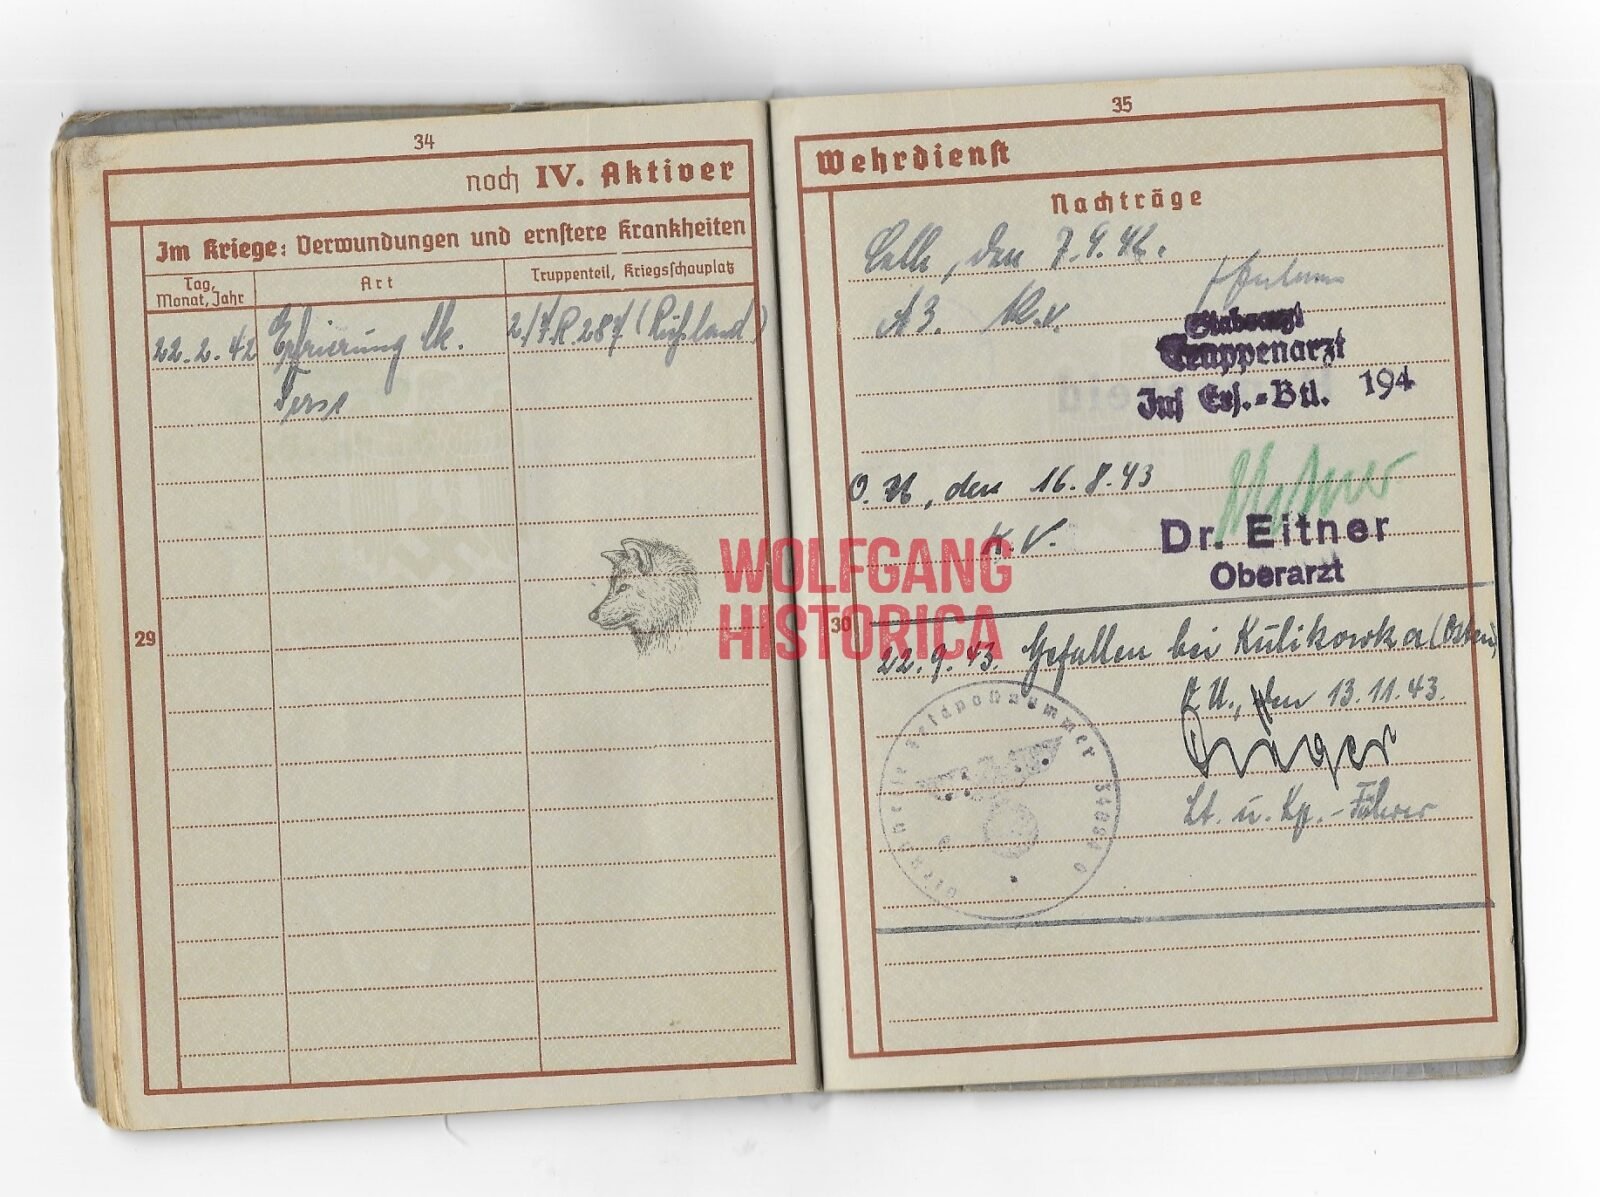 34
noch IV. Aktiver
Im Kriege: Verwundungen und ernstere Krankheiten
Tag, Monat, Jahr
Art
Truppenteil, Kriegsschauplatz
22.2.42
Erfrierung lk.
Ferse
2/J.R 287 (Rußland)
29
35
Wehrdienst
Nachträge
Celle, den 7.9.42.
A3. K.v.
Stabsarzt
Truppenarzt
Inf Ers.-Btl. 194
O.U, den 16.8.43
K.V.
Dr. Eitner
Oberarzt
30
22.9.43. Gefallen bei Kulikowka (Osten)
O.U., den 13.11.43.
Lt. u. Kp.-Führer
Dienststelle Feldpostnummer
WOLFGANG
HISTORICA